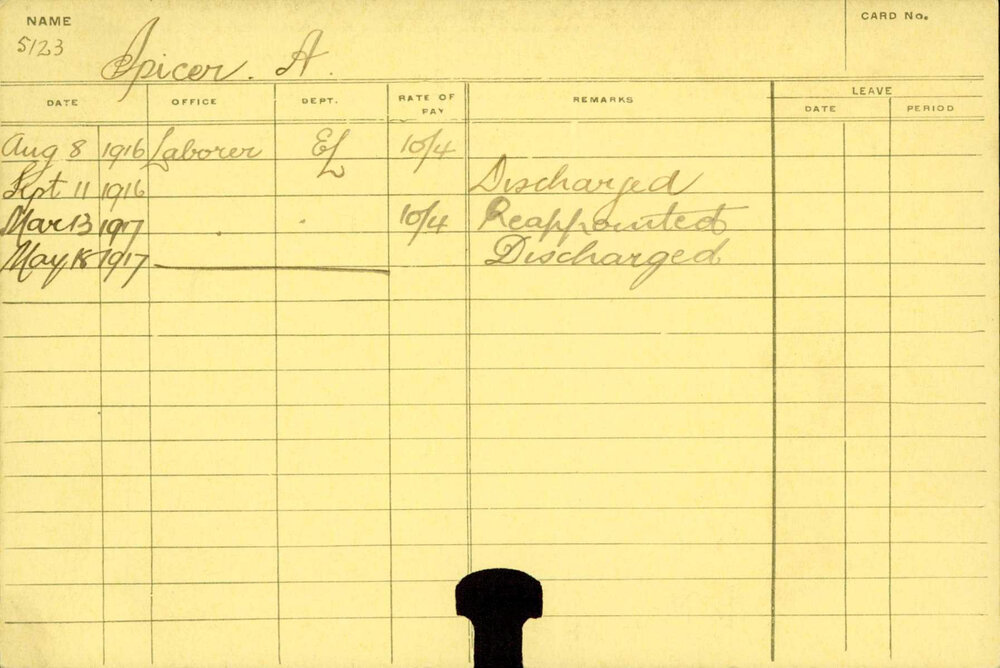 NAME
CARD No.
5123
Spicer. A.
DATE OFFICE DEPT. RATE OF PAY REMARKS LEAVE
DATE PERIOD
Aug 8 1916 Laborer EL 10/4
Sept 11 1916 Discharged
Mar 13 1917 10/4 Reappointed
May 18 1917 Discharged